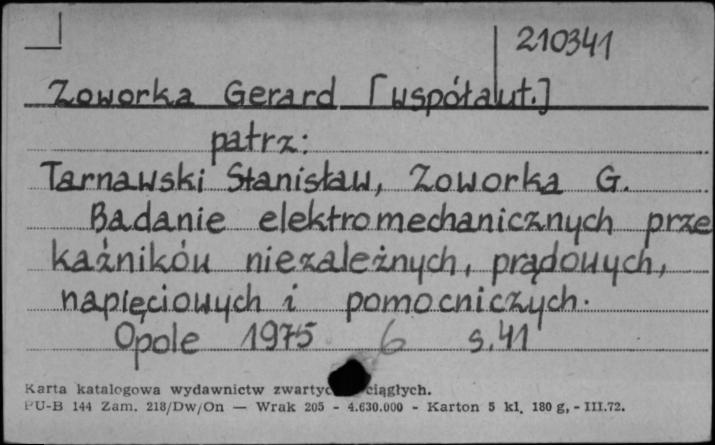 210341
Zoworka Gerard [współaut.]
patrz:
Tarnawski Stanisław, Zoworka G.
Badanie elektromechanicznych prze
kaźników niezależnych, prądowych,
napięciowych i pomocniczych.
Opole 1975 6 s.41
Karta katalogowa wydawnictw ciągłych.
PU-B 144 Zam. 218/Dw/On — Wrak 205 - 4.630.000 - Karton 5 kl. 180 g, - III.72.